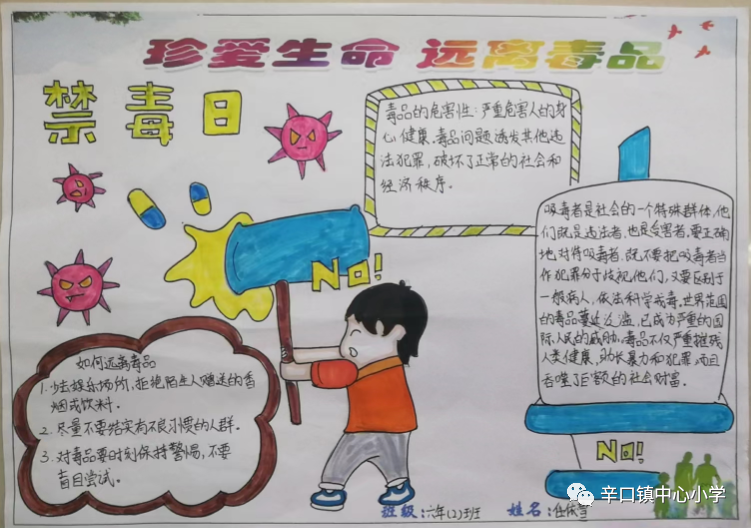 珍爱生命 远离毒品
禁毒日
毒品的危害性：严重危害人的身
心健康。毒品问题诱发其他违
法犯罪，破坏了正常的社会和
经济秩序。
吸毒者是社会的一个特殊群体，他
们既是违法者，也是受害者，要正确
地对待吸毒者，既不要把吸毒者当
作犯罪分子歧视他们，又要区别于
一般病人，依法科学戒毒，世界范围
的毒品蔓延泛滥，已成为严重的国
际人民的威胁，毒品不仅严重摧残
人类健康，助长暴力和犯罪，而且
吞噬了巨额的社会财富。
No!
如何远离毒品
1. 少去娱乐场所，拒绝陌生人赠送的香
烟或饮料。
2. 尽量不要结实有不良习惯的人群。
3. 对毒品要时刻保持警惕，不要
盲目尝试。
No!
班级：六年(2)班 姓名：任
辛口镇中心小学